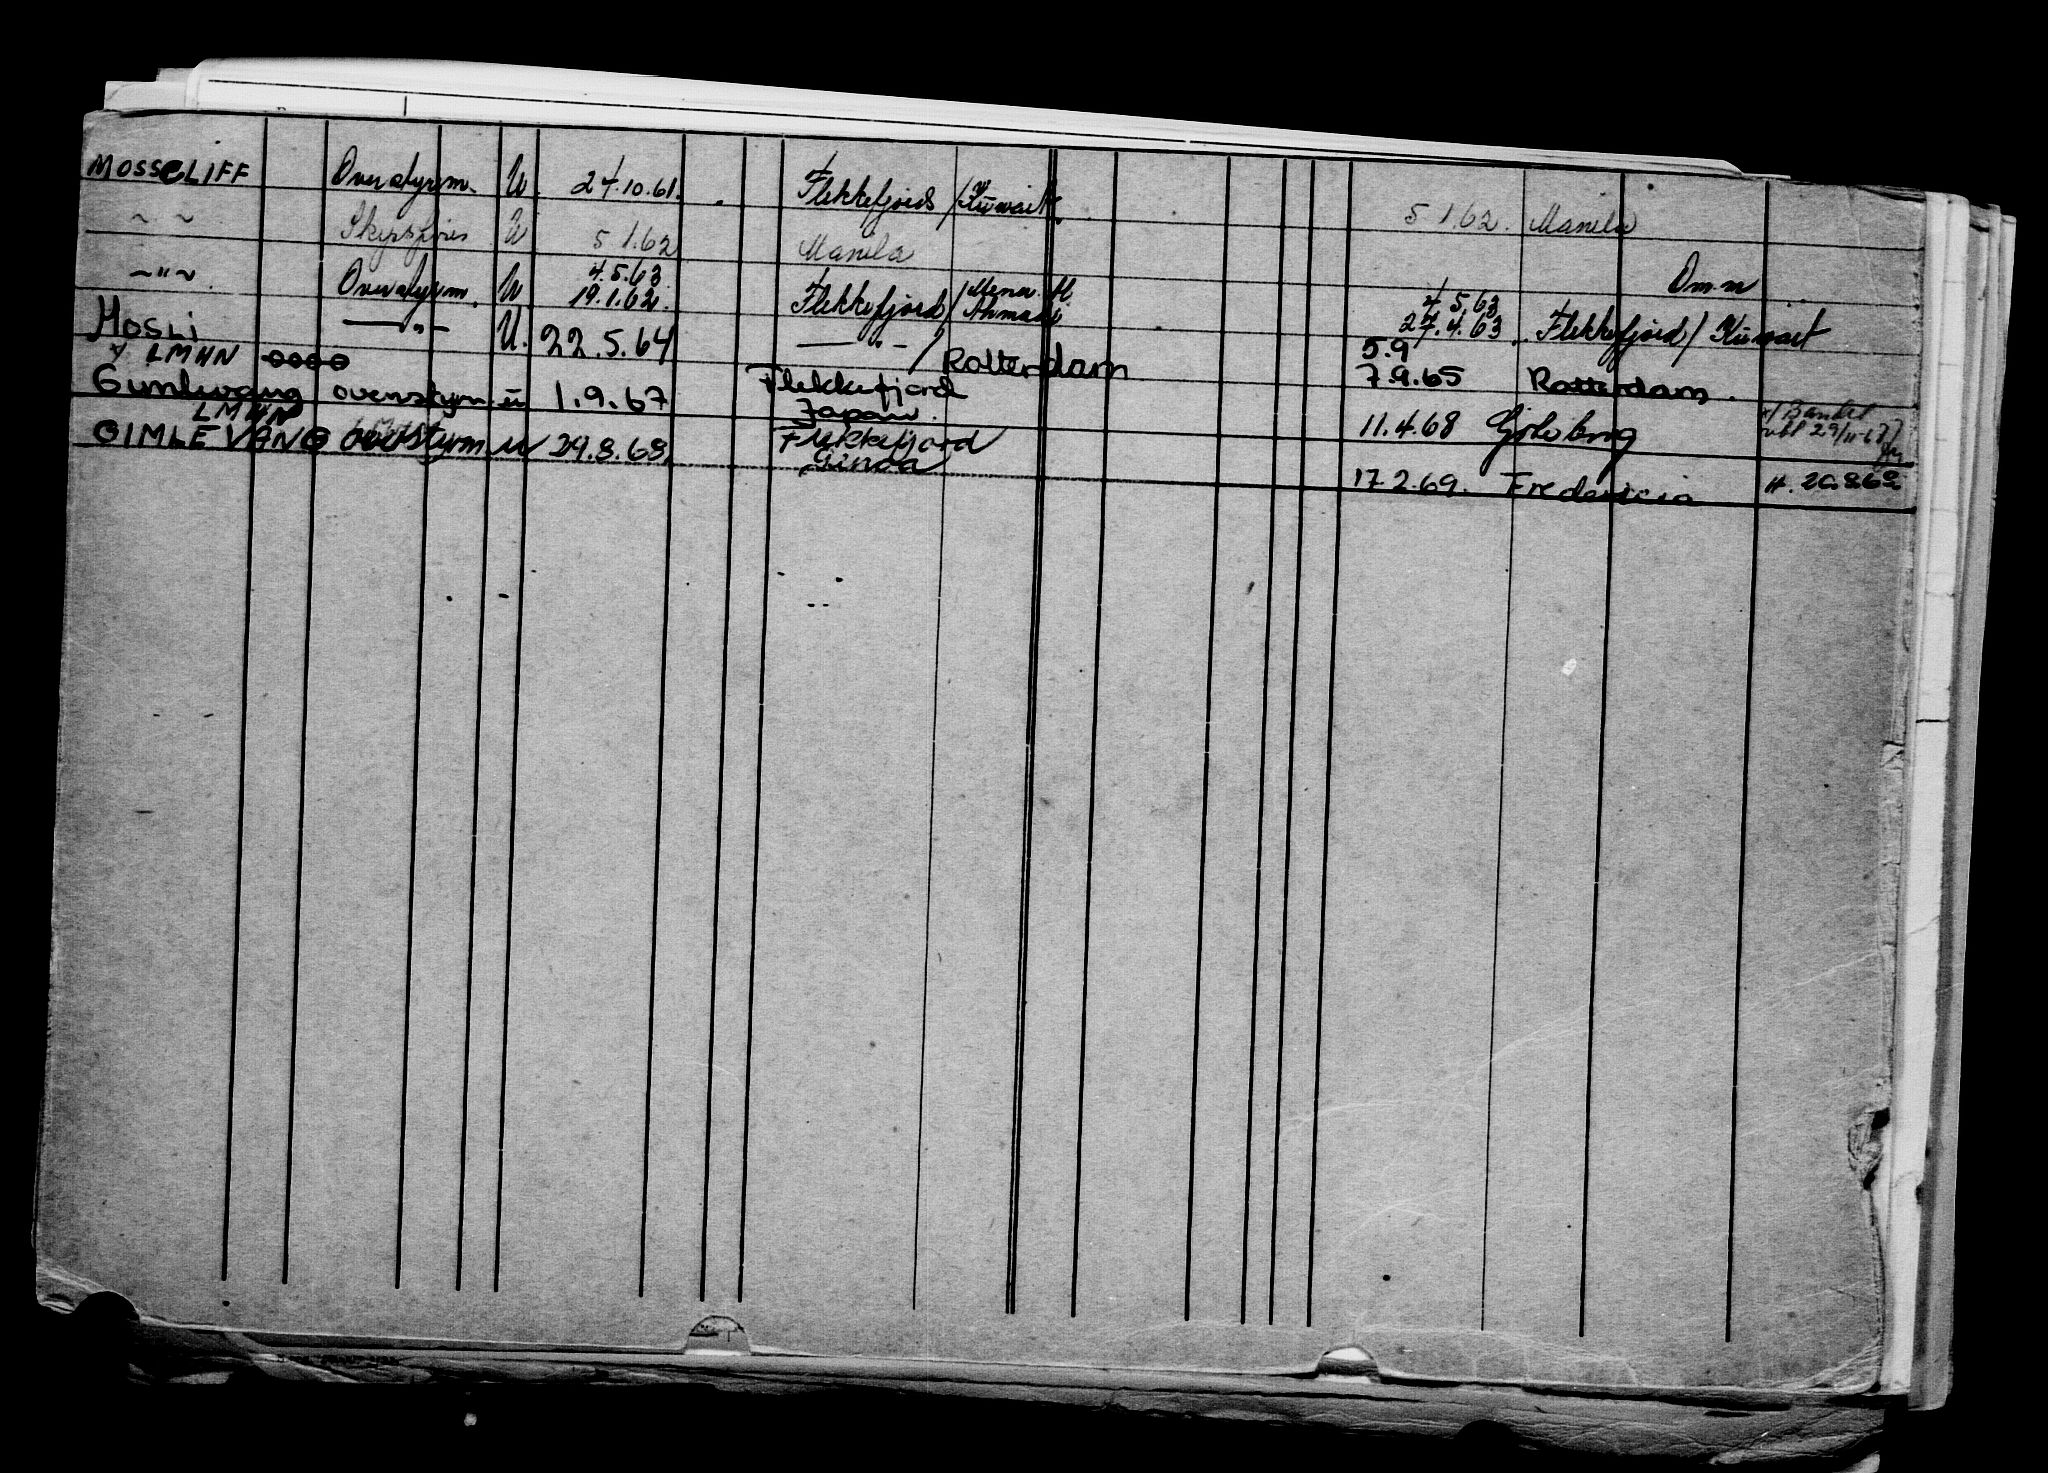 MOSSCLIFF Overstyrm. U. 24.10.61. Flekkefjord / Kuwait
~ ~ Skipsfører U 5 1.62 Manila 5 1.62. Manila
Om.n
4.5.63 4.5.63
~"~ Overstyrm. U 19.1.62. Flekkefjord / Mena Al. Ahmadi 27.4.63 Flekkefjord / Kuwait
Mosli —"— U. 22.5.64 —"— / Rotterdam 5.9
LMHN 7.9.65 Rotterdam.
overstyrm u 1.9.67 Flekkefjord
Japan. 11.4.68 Göteborg
LMHN
GIMLEVANG overstyrm u 29.8.68 Flekkefjord
17.2.69. Fredericia